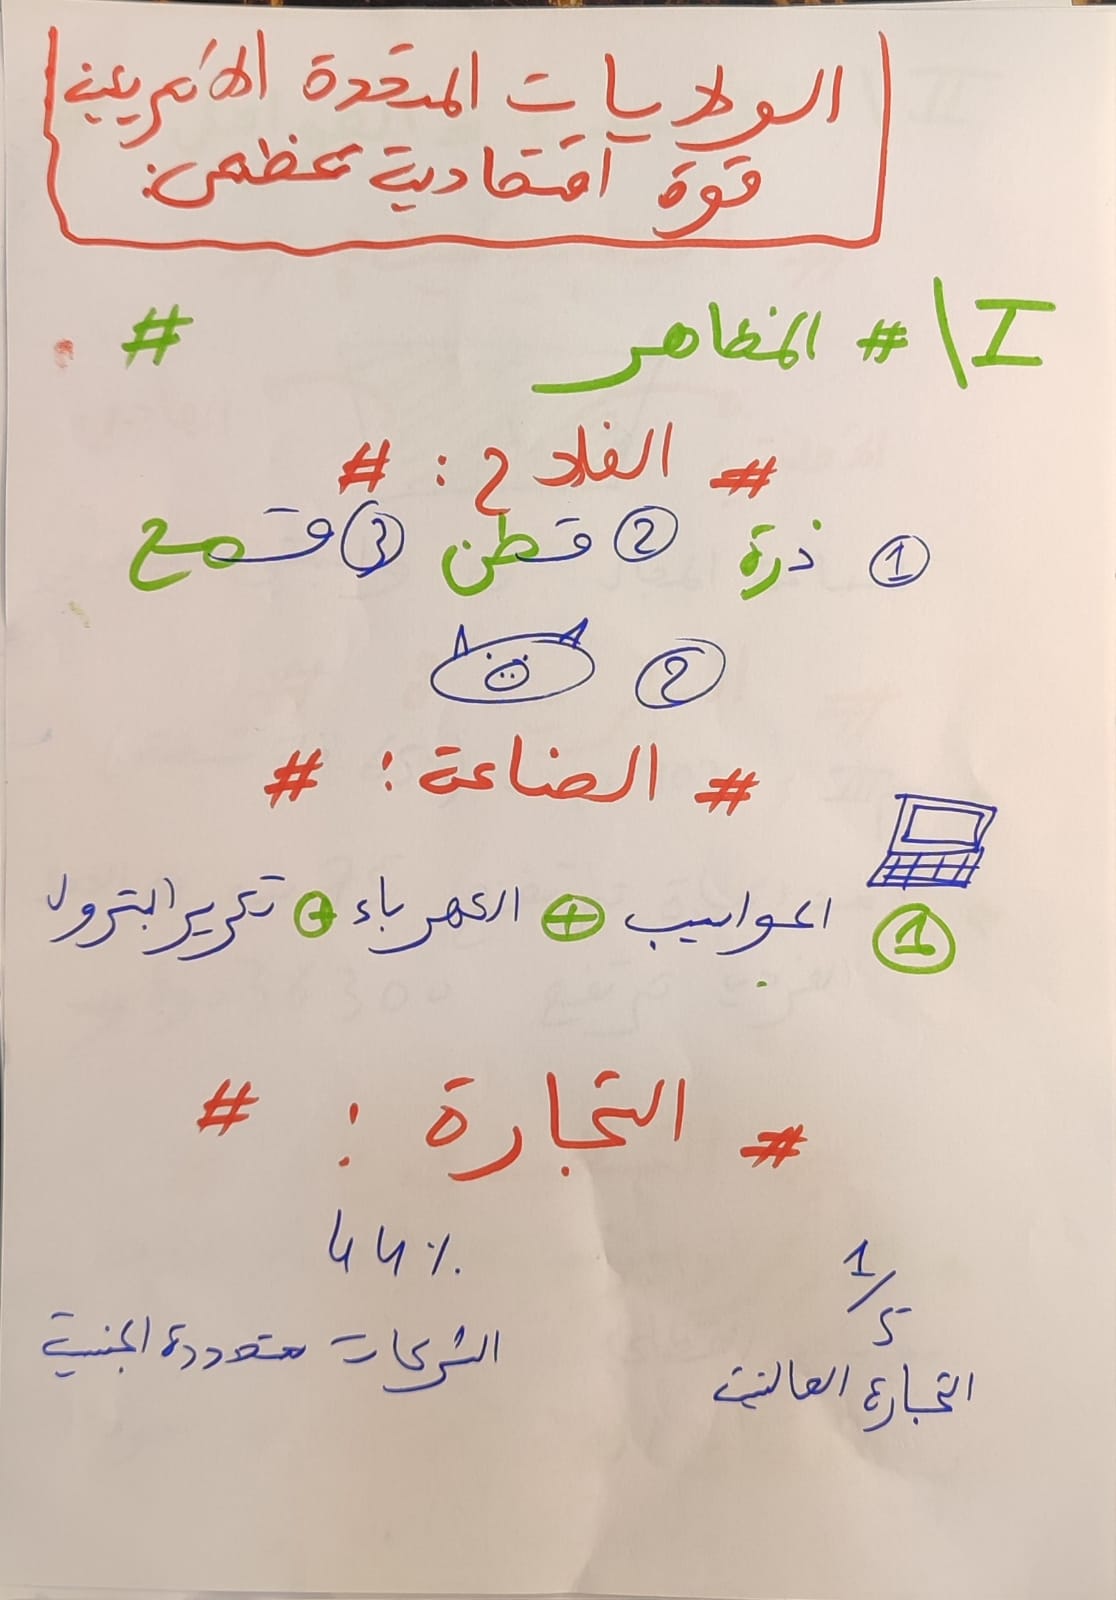 الولايات المتحدة الأمريكية
قوة اقتصادية عظمى:
I\ # المظاهر #
# الفلاح : #
① ذرة ② قطن ③ قمح
②
# الصناعة : #
① الحواسيب + الكهرباء + تكرير البترول
# التجارة : #
1/5 التجارة العالمية
44٪ الشركات متعددة الجنسية